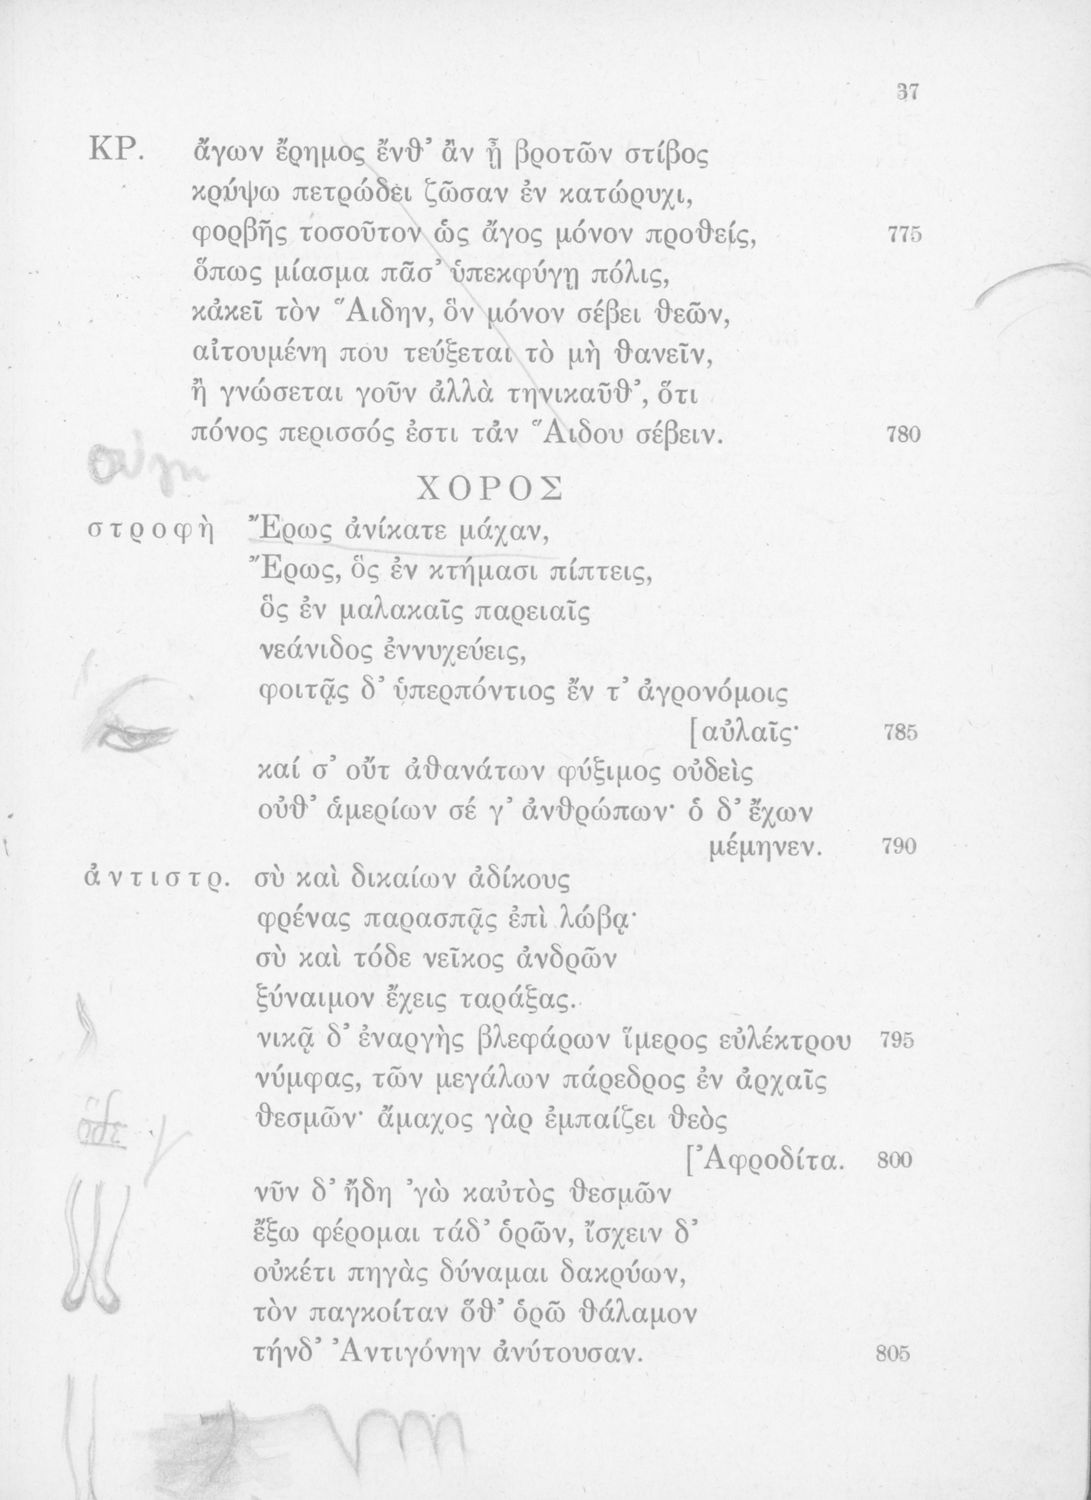 37
ΚΡ. ἄγων ἔρημος ἔνθ’ ἂν ᾖ βροτῶν στίβος
κρύψω πετρώδει ζῶσαν ἐν κατώρυχι,
φορβῆς τοσοῦτον ὡς ἄγος μόνον προθείς, 775
ὅπως μίασμα πᾶσ’ ὑπεκφύγῃ πόλις,
κἀκεῖ τὸν Ἅιδην, ὃν μόνον σέβει θεῶν,
αἰτουμένη που τεύξεται τὸ μὴ θανεῖν,
ἢ γνώσεται γοῦν ἀλλὰ τηνικαῦθ’, ὅτι
πόνος περισσός ἐστι τἀν Ἅιδου σέβειν. 780
ΧΟΡΟΣ
στροφὴ Ἔρως ἀνίκατε μάχαν,
Ἔρως, ὃς ἐν κτήμασι πίπτεις,
ὃς ἐν μαλακαῖς παρειαῖς
νεάνιδος ἐννυχεύεις,
φοιτᾷς δ’ ὑπερπόντιος ἔν τ’ ἀγρονόμοις
[αὐλαῖς· 785
καί σ’ οὔτ ἀθανάτων φύξιμος οὐδεὶς
οὐθ’ ἁμερίων σέ γ’ ἀνθρώπων· ὁ δ’ ἔχων
μέμηνεν. 790
ἀντιστρ. σὺ καὶ δικαίων ἀδίκους
φρένας παρασπᾷς ἐπὶ λώβᾳ·
σὺ καὶ τόδε νεῖκος ἀνδρῶν
ξύναιμον ἔχεις ταράξας.
νικᾷ δ’ ἐναργὴς βλεφάρων ἵμερος εὐλέκτρου 795
νύμφας, τῶν μεγάλων πάρεδρος ἐν ἀρχαῖς
θεσμῶν· ἄμαχος γὰρ ἐμπαίζει θεὸς
[Ἀφροδίτα. 800
νῦν δ’ ἤδη ’γὼ καὐτὸς θεσμῶν
ἔξω φέρομαι τάδ’ ὁρῶν, ἴσχειν δ’
οὐκέτι πηγὰς δύναμαι δακρύων,
τὸν παγκοίταν ὅθ’ ὁρῶ θάλαμον
τήνδ’ Ἀντιγόνην ἀνύτουσαν. 805